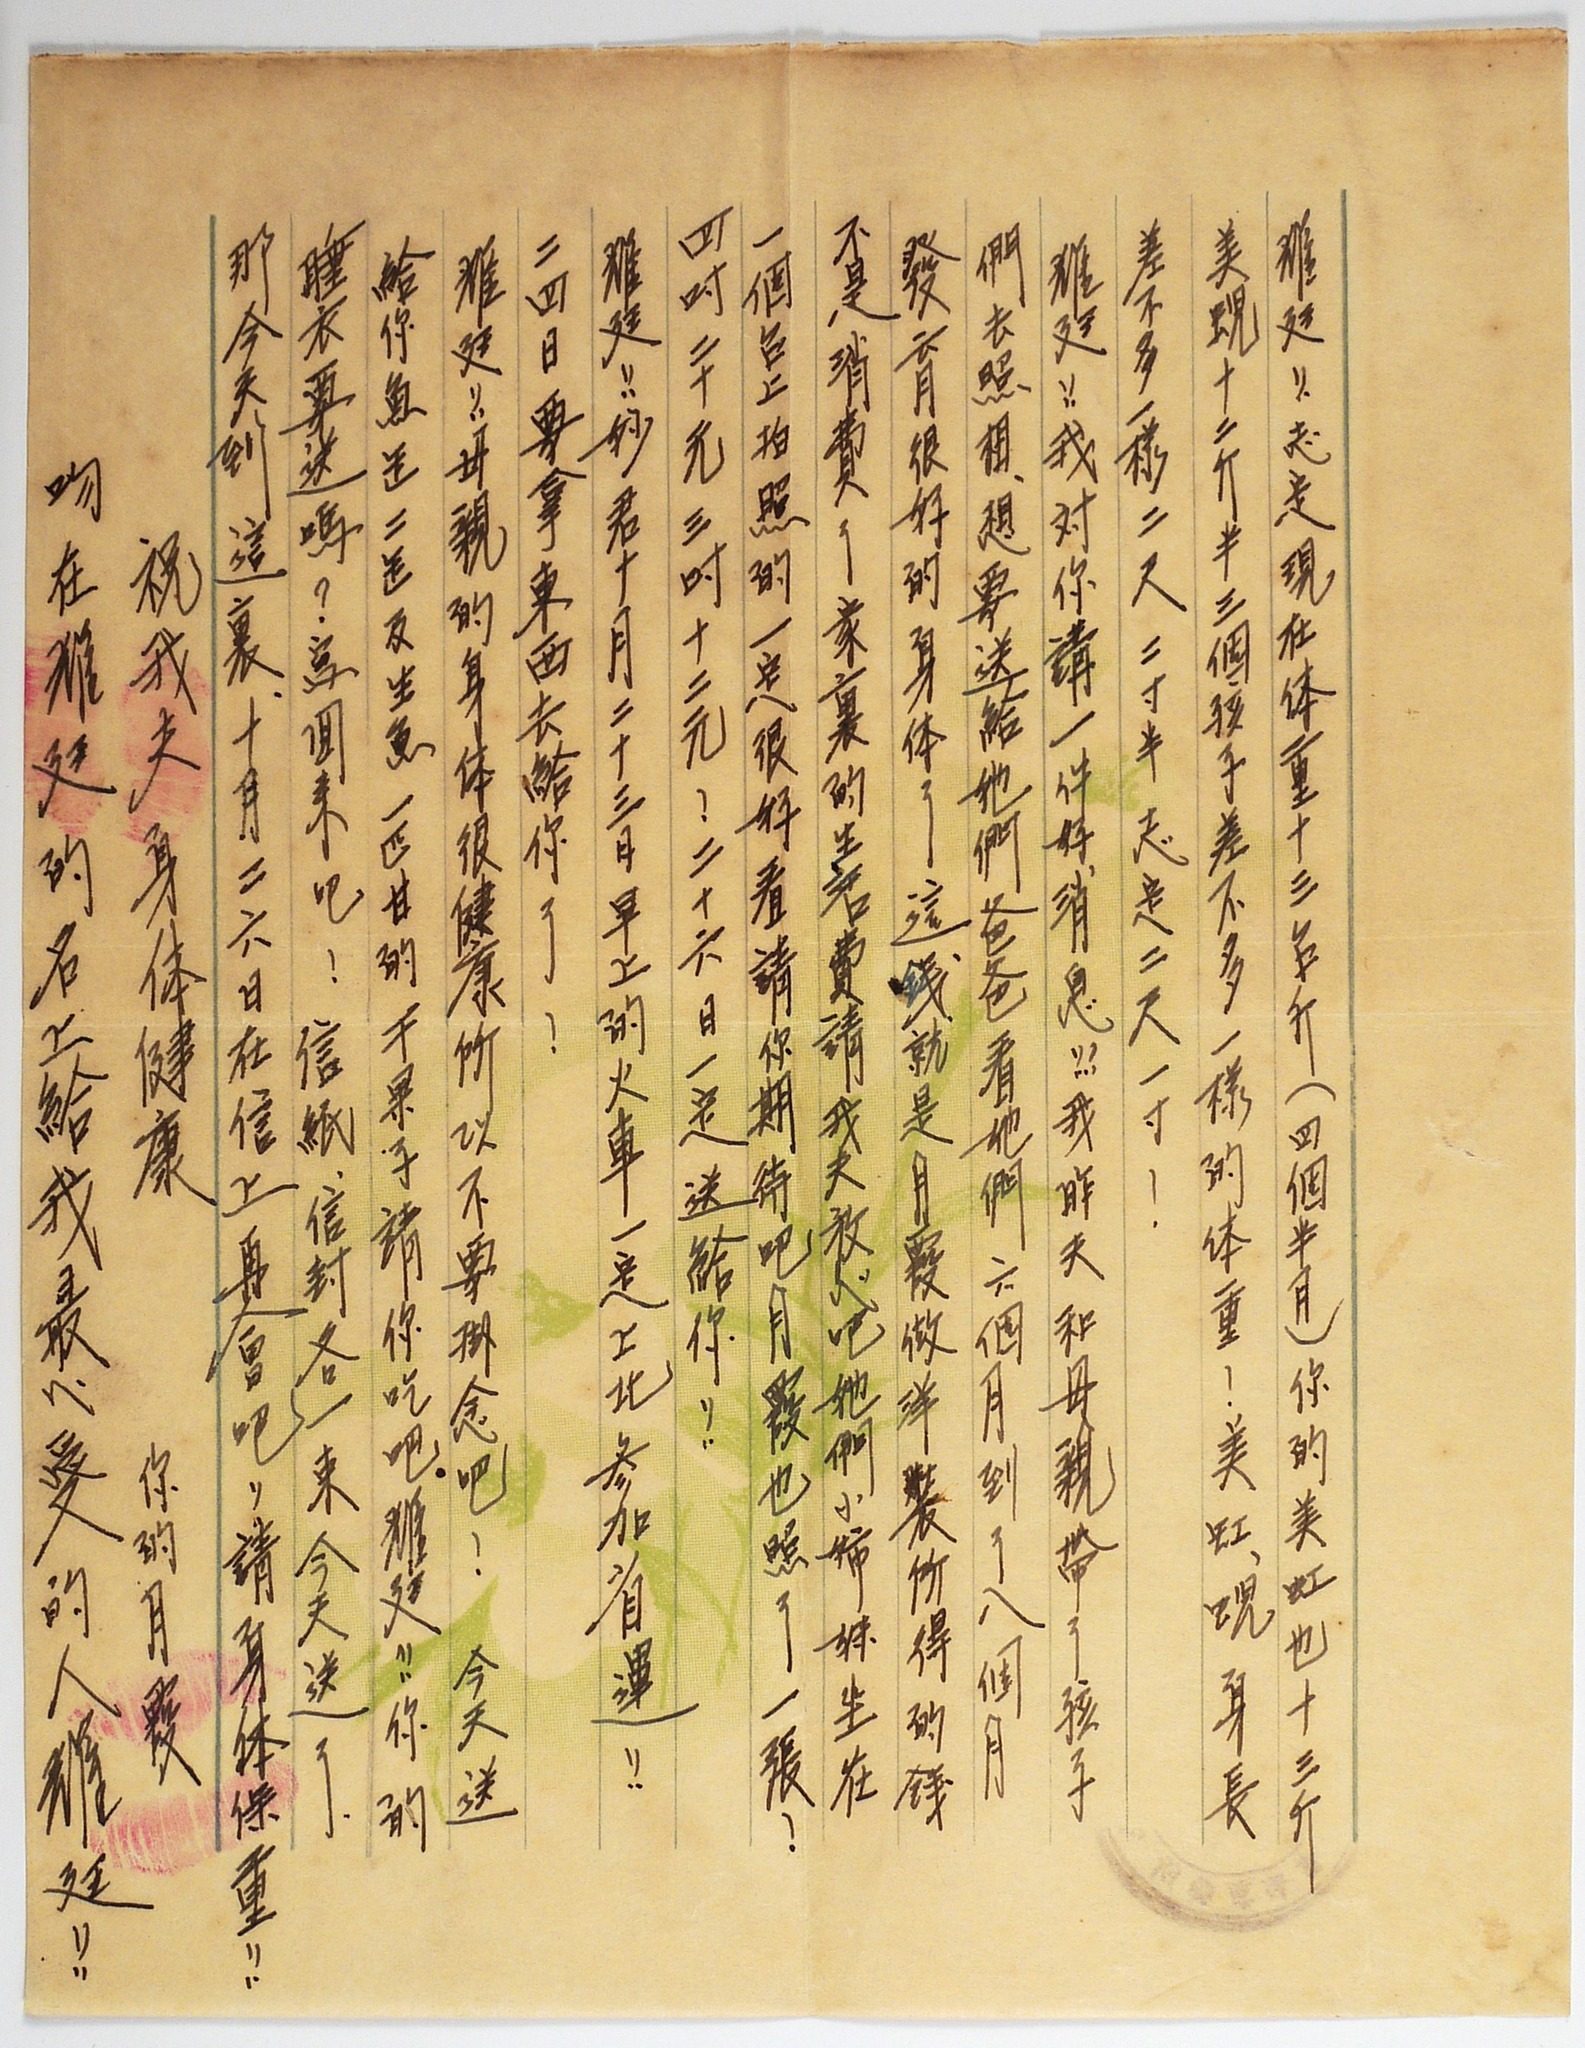 雅廷!!志定現在体重十三台斤(四個半月)你的美虹也十三斤
美蜆十二斤半三個孩子差不多一樣的体重!美虹、蜆身長
差不多一樣二尺二寸半志定二尺一寸!
雅廷!!我对你講一件好消息!!!我昨天和母親帶了孩子
們去照相、想要送給他們爸爸看他們六個月到了八個月
發育很好的身体了這、錢就是月霞做洋裝所得的錢
不是消費了家裏的生活費請我夫放心吧他們小姊妹坐在
一個台上拍照的一定很好看請你期待吧月霞也照了一張!
四吋二十元三吋十二元!二十六日一定送給你!!
雅廷!!妙君十月二十三日早上的火車一定上北參加省運!!
二四日要拿東西去給你了!
雅廷!!母親的身体很健康所以不要掛念吧!今天送
給你魚二及生魚一匹甘的干果子請你吃吧。雅廷!!你的
睡衣要送嗎?寫回来吧!信紙、信封各一束今天送了.
那今天到這裏、十月二六日在信上再會吧!!請身体保重!!
祝我夫身体健康 你的月霞
吻在雅廷的名上給我最心愛的人雅廷!!